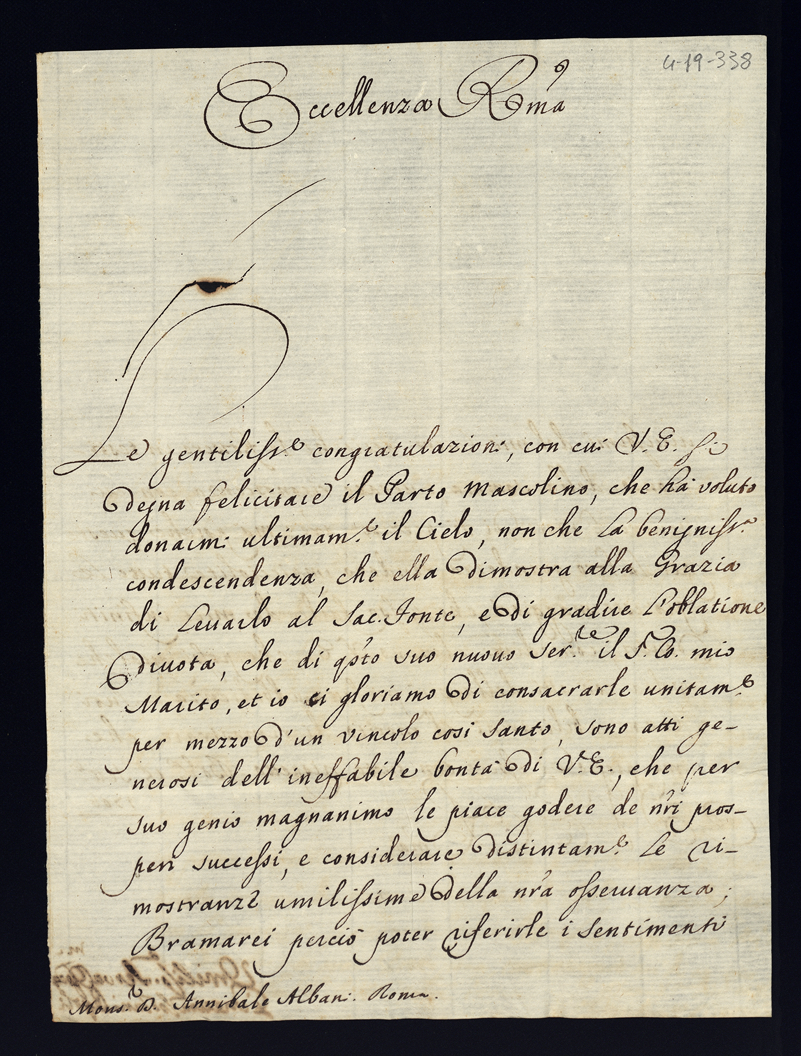 4-19-338
Eccellenza Rma
Le gentiliss.e congratulazioni, con cui V.E. si
degna felicitare il Parto Mascolino, che hà voluto
donarmi ultimam.e il Cielo, non che la benigniss.a
condescendenza, che ella dimostra alla Grazia
di Levarlo al Sac. Fonte, e di gradire l'oblatione
divota, che di qsto suo nuovo Ser.re il S. Co. mio
Marito, et io ci gloriamo di consacrarle unitam.e
per mezzo d'un vincolo così santo, sono atti ge-
nerosi dell'ineffabile bontà di V.E., che per
suo genio magnanimo le piace godere de nri pros-
peri successi, e considerare distintam.e le ri-
mostranze umilissime della nra osservanza;
Bramarei perciò poter riferirle i sentimenti
Mons.r D. Annibale Albani. Roma.